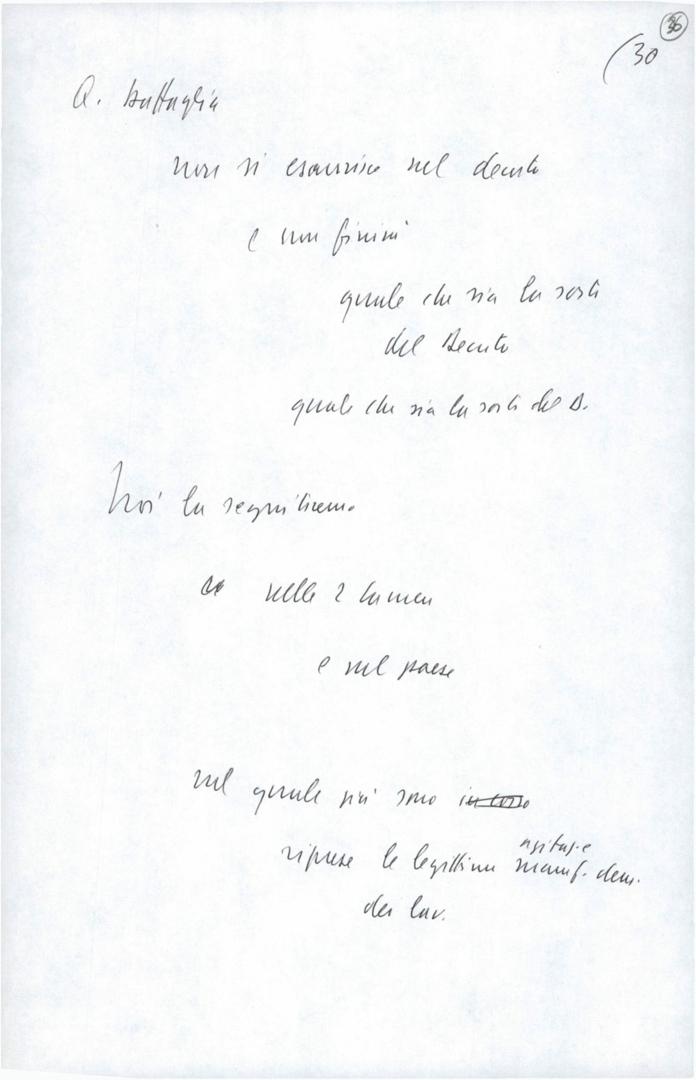 36
(30
Q. battaglia
non si esaurisce nel decreto
e non finirà
quale che sia la sorte
del Decreto
quale che sia la sorte del D.
Noi la seguiteremo
nelle 2 Camere
e nel paese
nel quale già sono in corso
agitaz. e
riprese le legittime manif. dem.
dei lav.